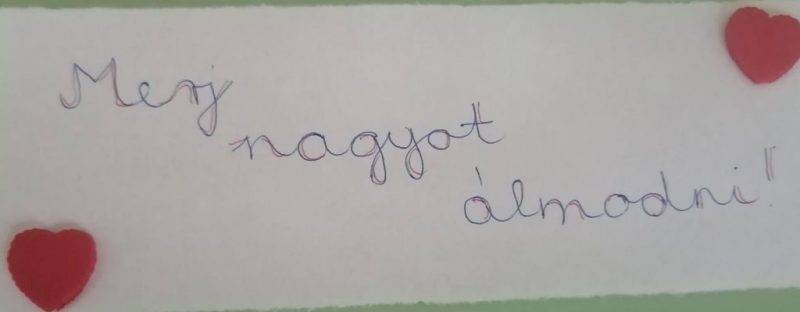 Merj
nagyot
álmodni!